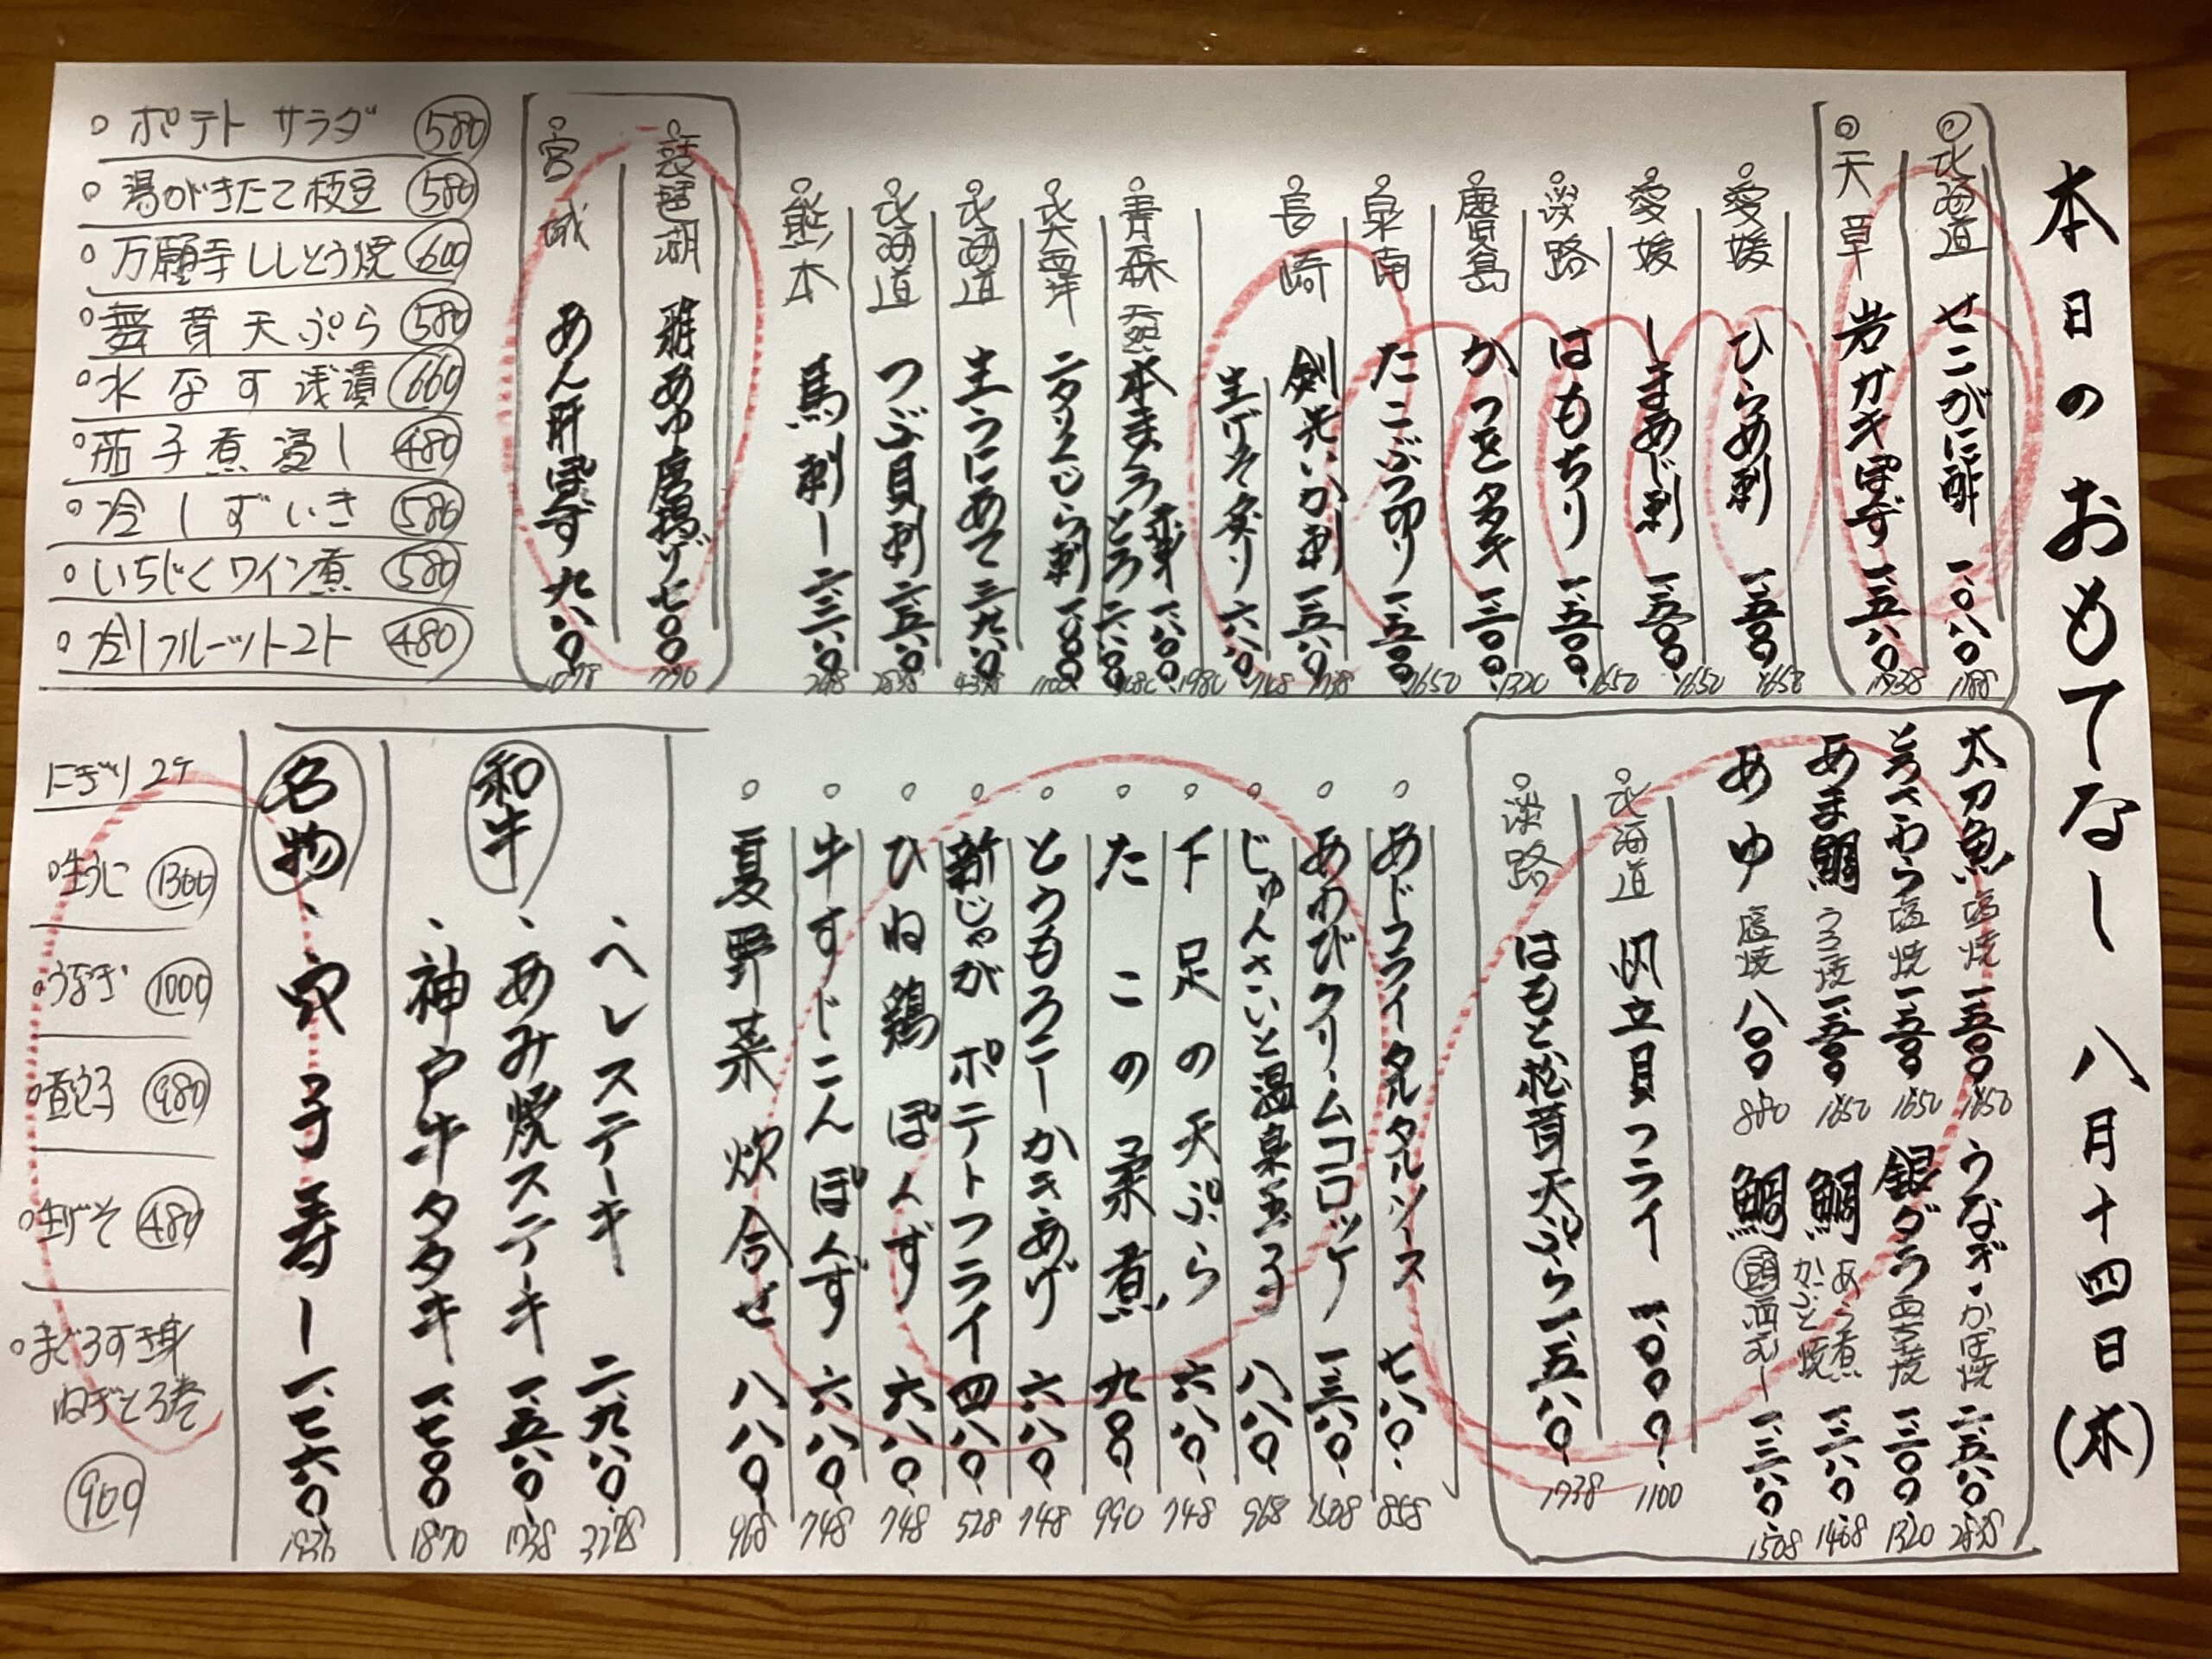 本日のおもてなし 八月十四日(木)
◎北海道 せこがに酢 一、〇八〇 1188
◎天草 岩ガキぽず 一、五八〇 1738
愛媛 ひらめ刺 一、五〇〇 1650
愛媛 しまあじ刺 一、五〇〇 1650
淡路 はもちり 一、五〇〇 1650
鹿児島 かつをタタキ 一、二〇〇 1320
泉南 たこぶつ切り 一、五〇〇 1650
長崎 剣先いか刺 一、五八〇 1738
生げそ炙り 六八〇 748
青森 天然 本まぐろ 赤身 一、八〇〇 1980
とろ 二、八〇
北大西洋 ニタリくじら刺 一、〇〇〇 1100
北海道 生うにあて 三、九八〇
北海道 つぶ貝刺 二、五八〇 2838
熊本 馬刺し 二、三八〇
琵琶湖 稚あゆ唐揚げ 七〇〇 770
宮城 あん肝ぽず 九八〇 1078
ポテトサラダ 580
湯がきたて枝豆 580
万願寺ししとう焼 600
舞茸天ぷら 580
水なす浅漬 660
茄子煮浸し 480
冷しずいき 580
いちじくワイン煮 580
冷しフルーツトマト 480
太刀魚 塩焼 一、五〇〇 1650
とろさわら 塩焼 一、五〇〇 1650
あま鯛 うろこ焼 一、五〇〇 1650
あゆ 塩焼 八〇〇 880
うなぎ・かば焼 二、五八〇 2838
銀ダラ 西京焼 一、二〇〇 1320
鯛 あら煮 かぶと焼 一、三八〇
鯛 頭 酒むし 一、三八〇 1508
北海道 帆立貝フライ 一、〇〇〇 1100
淡路 はもと松茸天ぷら 一、五八〇 1738
あじフライタルタルソース 七八〇 858
あわびクリームコロッケ 一、三八〇 1508
じゅんさいと温泉玉子 八八〇 968
下足の天ぷら 六八〇 748
たこの柔煮 九〇〇 990
とうもろこしかきあげ 六八〇 748
新じゃがポテトフライ 四八〇 528
ひね鶏ぽんず 六八〇 748
牛すじこんぽんず 六八〇 748
夏野菜炊合せ 八八〇 968
和牛
、ヘレステーキ 二、九八〇 3278
、あみ焼ステーキ 一、五八〇 1738
、神戸牛タタキ 一、七〇〇 1870
名物
、穴子寿し 一、七六〇 1936
にぎり2ケ
生うに 1300
うなぎ 1000
煮穴子 980
生げそ 480
まぐろすき身
ねぎとろ巻
900